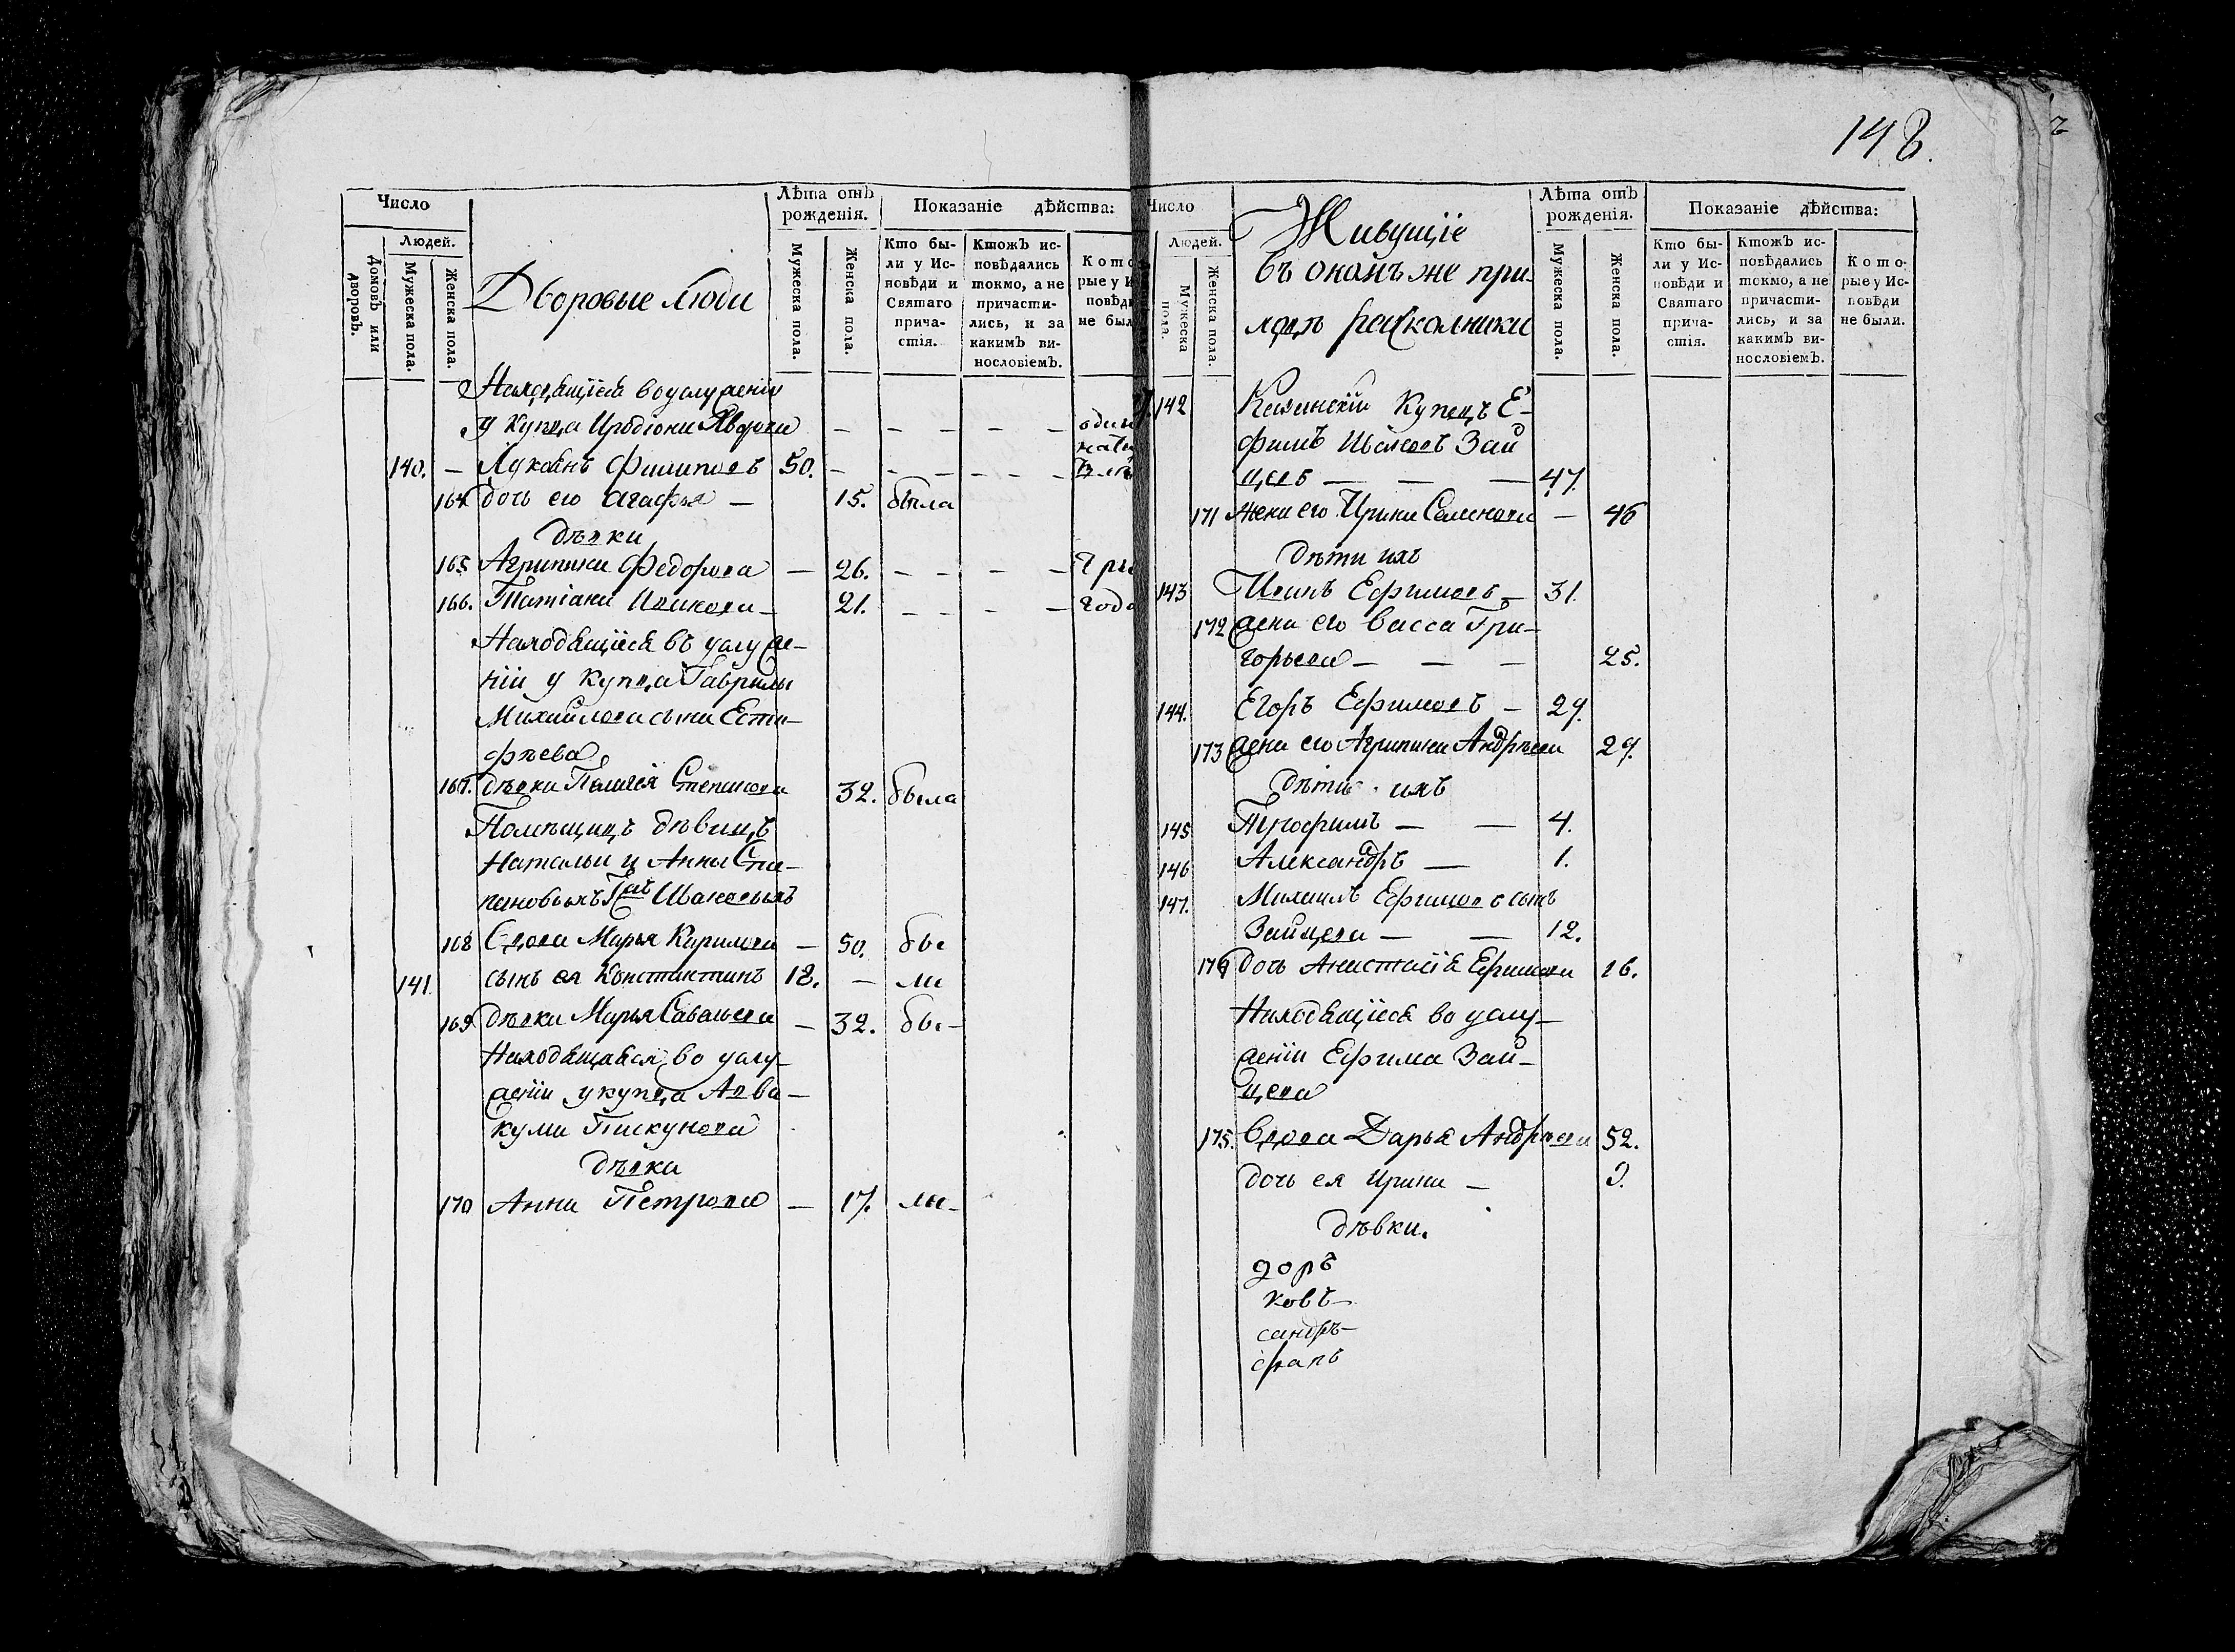 Число
Людей.
Домовъ или дворовъ.
Мужеска пола.
Женска пола.
Дворовые люди
Лѣта отъ рожденія.
Мужеска пола.
Женска пола.
Показаніе дѣйства:
Кто бы-
ли у Ис-
повѣди и
Святаго
прича-
стія.
Ктожъ ис-
повѣдались
токмо, а не
причасти-
лись, и за
какимъ ви-
нословіемъ.
Кото
рые у И
повѣд
не был
Находящіеся во услуженіи
у купца Иродіона
140. — Лукоянъ Филиповъ 50. —
164 дочь его Агафья — 15. была
дѣвки
165 Агрипина Федорова — 26. — —
166. Татіана Иванова — 21. — —
Находящіеся въ услуже-
ніи у купца Гаврилы
Михайлова сына Еста-
фѣева
167. дѣвка Пелагея Степанова 32. была
Помѣщицъ дѣвицъ
Натальи и Анны Сте-
пановыхъ Ивановыхъ
168 Вдова Марья Кирилова — 50. бы
141. сынъ ея Константинъ 18. — ли
169 дѣвка Марья Савельева — 32. бы—
Находящаяся во услу-
женіи у купца Авва-
кума Пискунова
дѣвка
170 Анна Петрова — 17. ли—
148.
Число
Людей.
Мужеска пола.
Женска пола.
Живущіе
въ ономъ же при-
ходѣ раскольники
Лѣта отъ рожденія.
Мужеска пола.
Женска пола.
Показаніе дѣйства:
Кто бы-
ли у Ис-
повѣди и
Святаго
прича-
стія.
Ктожъ ис-
повѣдались
токмо, а не
причасти-
лись, и за
какимъ ви-
нословіемъ.
Кото-
рые у Ис-
повѣди
не были.
142 купецъ Е-
фимъ Ивановъ Зай
цевъ — — — 47.
171 жена его Ирина Семенова — 46
дѣти ихъ
143 Иванъ Ефимовъ — 31.
172 жена его Васса Гри-
горьева — — — 25.
144. Егоръ Ефимовъ — 29.
173 жена его Агрипина Андрѣева 29.
дѣти ихъ
145 Трофимъ — — 4.
146 Александръ — 1.
147. Михаилъ Ефимовъ сынъ
Зайцева — — 12.
174 дочь Анастасія Ефимова 16.
Находящіеся во услу-
женіи Ефима Зай-
цева
175. Вдова Дарья Андрѣева 52.
дочь ея Ирина —
дѣвки.
доръ
ковъ—
сандръ—